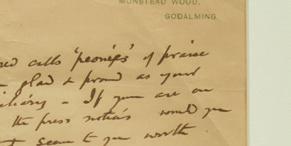 MUNSTEAD WOOD,
GODALMING.
calls 'peonies' of praise
glad & proud as your
If you are
the press notices would you
seem to you worth